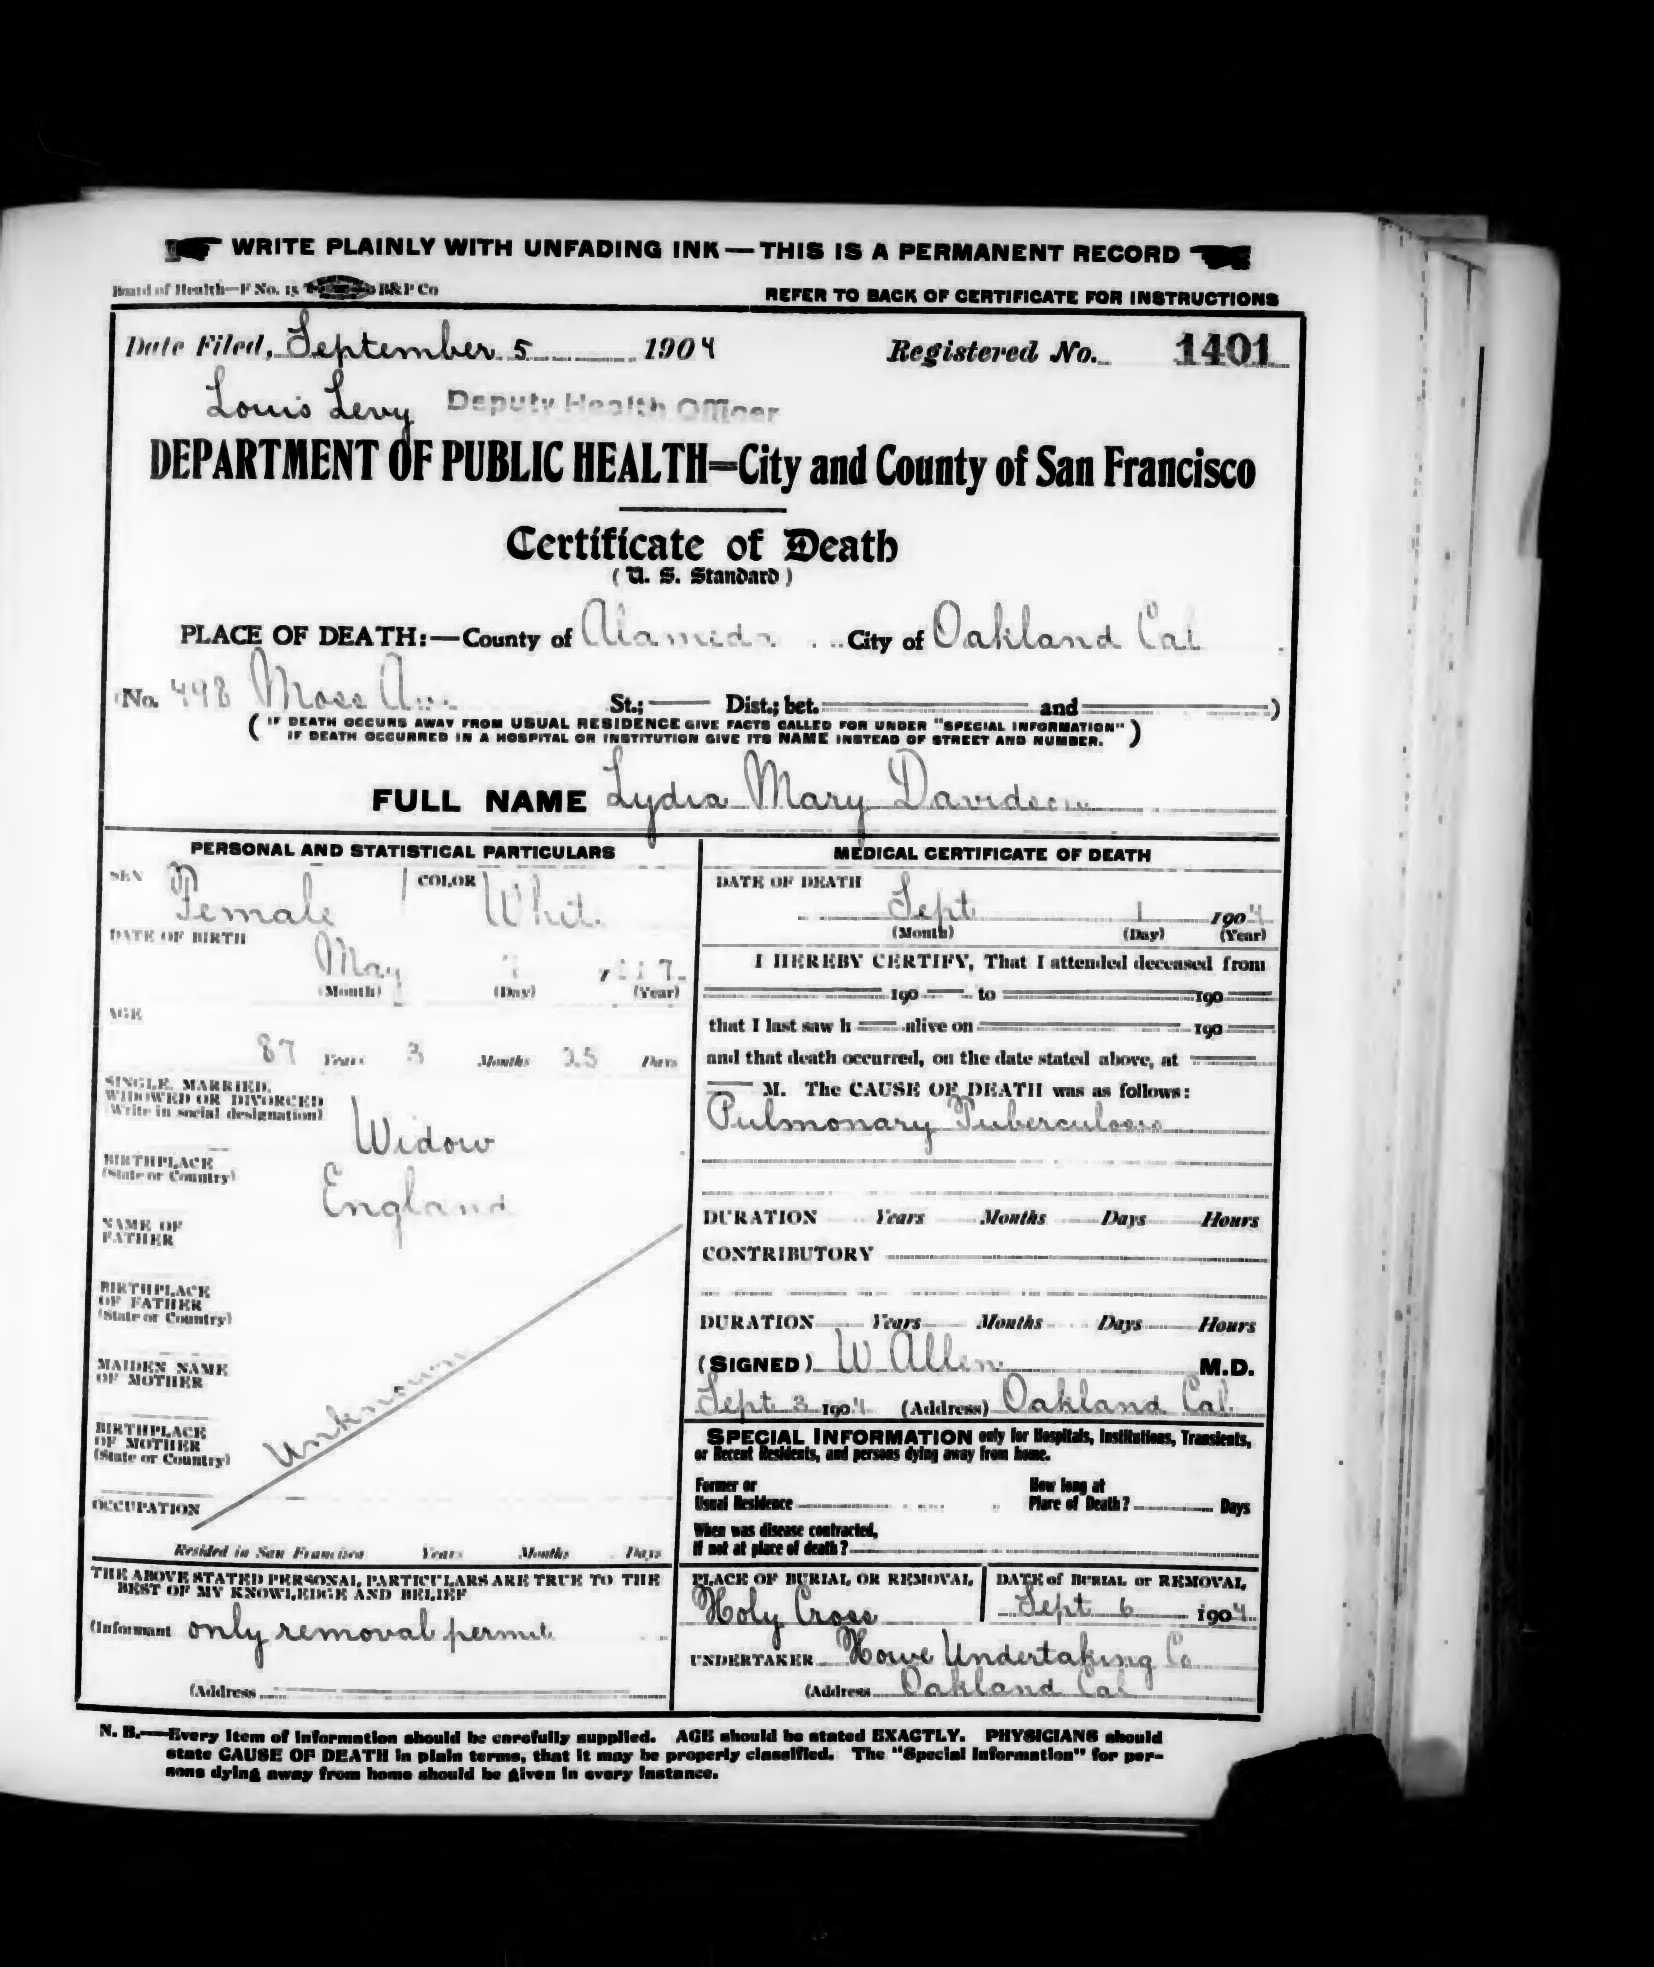 WRITE PLAINLY WITH UNFADING INK — THIS IS A PERMANENT RECORD
Board of Health—F No. 15 B&P Co
REFER TO BACK OF CERTIFICATE FOR INSTRUCTIONS
Date Filed, September 5 1904 Registered No. 1401
Louis Levy Deputy Health Officer
DEPARTMENT OF PUBLIC HEALTH=City and County of San Francisco
Certificate of Death
(U. S. Standard)
PLACE OF DEATH:—County of Alameda City of Oakland Cal
(No. 498 Moss Ave St.; Dist.; bet. and )
(IF DEATH OCCURS AWAY FROM USUAL RESIDENCE GIVE FACTS CALLED FOR UNDER "SPECIAL INFORMATION"
IF DEATH OCCURRED IN A HOSPITAL OR INSTITUTION GIVE ITS NAME INSTEAD OF STREET AND NUMBER.)
FULL NAME Lydia Mary Davidson
PERSONAL AND STATISTICAL PARTICULARS
SEX Female COLOR White
DATE OF BIRTH
May 7
(Month) (Day) (Year)
AGE
87 Years 3 Months 25 Days
SINGLE, MARRIED,
WIDOWED OR DIVORCED
(Write in social designation)
Widow
BIRTHPLACE
(State or Country)
England
NAME OF
FATHER
BIRTHPLACE
OF FATHER
(State or Country)
MAIDEN NAME
OF MOTHER
Unknown
BIRTHPLACE
OF MOTHER
(State or Country)
OCCUPATION
Resided in San Francisco Years Months Days
THE ABOVE STATED PERSONAL PARTICULARS ARE TRUE TO THE
BEST OF MY KNOWLEDGE AND BELIEF
(Informant only removal permit
(Address
MEDICAL CERTIFICATE OF DEATH
DATE OF DEATH
Sept 1 1904
(Month) (Day) (Year)
I HEREBY CERTIFY, That I attended deceased from
190 to 190
that I last saw h alive on 190
and that death occurred, on the date stated above, at
M. The CAUSE OF DEATH was as follows:
Pulmonary Tuberculosis
DURATION Years Months Days Hours
CONTRIBUTORY
DURATION Years Months Days Hours
(SIGNED) W Allen M.D.
Sept 3 1904 (Address) Oakland Cal.
SPECIAL INFORMATION only for Hospitals, Institutions, Transients,
or Recent Residents, and persons dying away from home.
Former or
Usual Residence
How long at
Place of Death? Days
When was disease contracted,
If not at place of death?
PLACE OF BURIAL OR REMOVAL
Holy Cross
DATE of BURIAL or REMOVAL
Sept 6 1904
UNDERTAKER Howe Undertaking Co
(Address Oakland Cal
N. B.—Every item of information should be carefully supplied. AGE should be stated EXACTLY. PHYSICIANS should
state CAUSE OF DEATH in plain terms, that it may be properly classified. The "Special Information" for per-
sons dying away from home should be given in every instance.